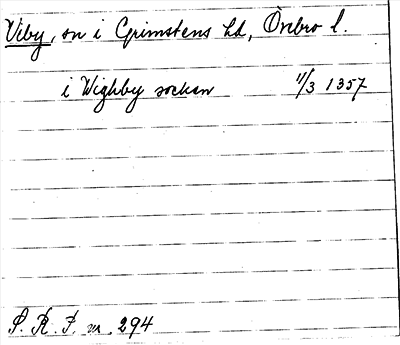 Viby, sn i Grimstens hd, Örebro l.
i Wighby sockan 11/3 1357
S. R. P. nr. 294